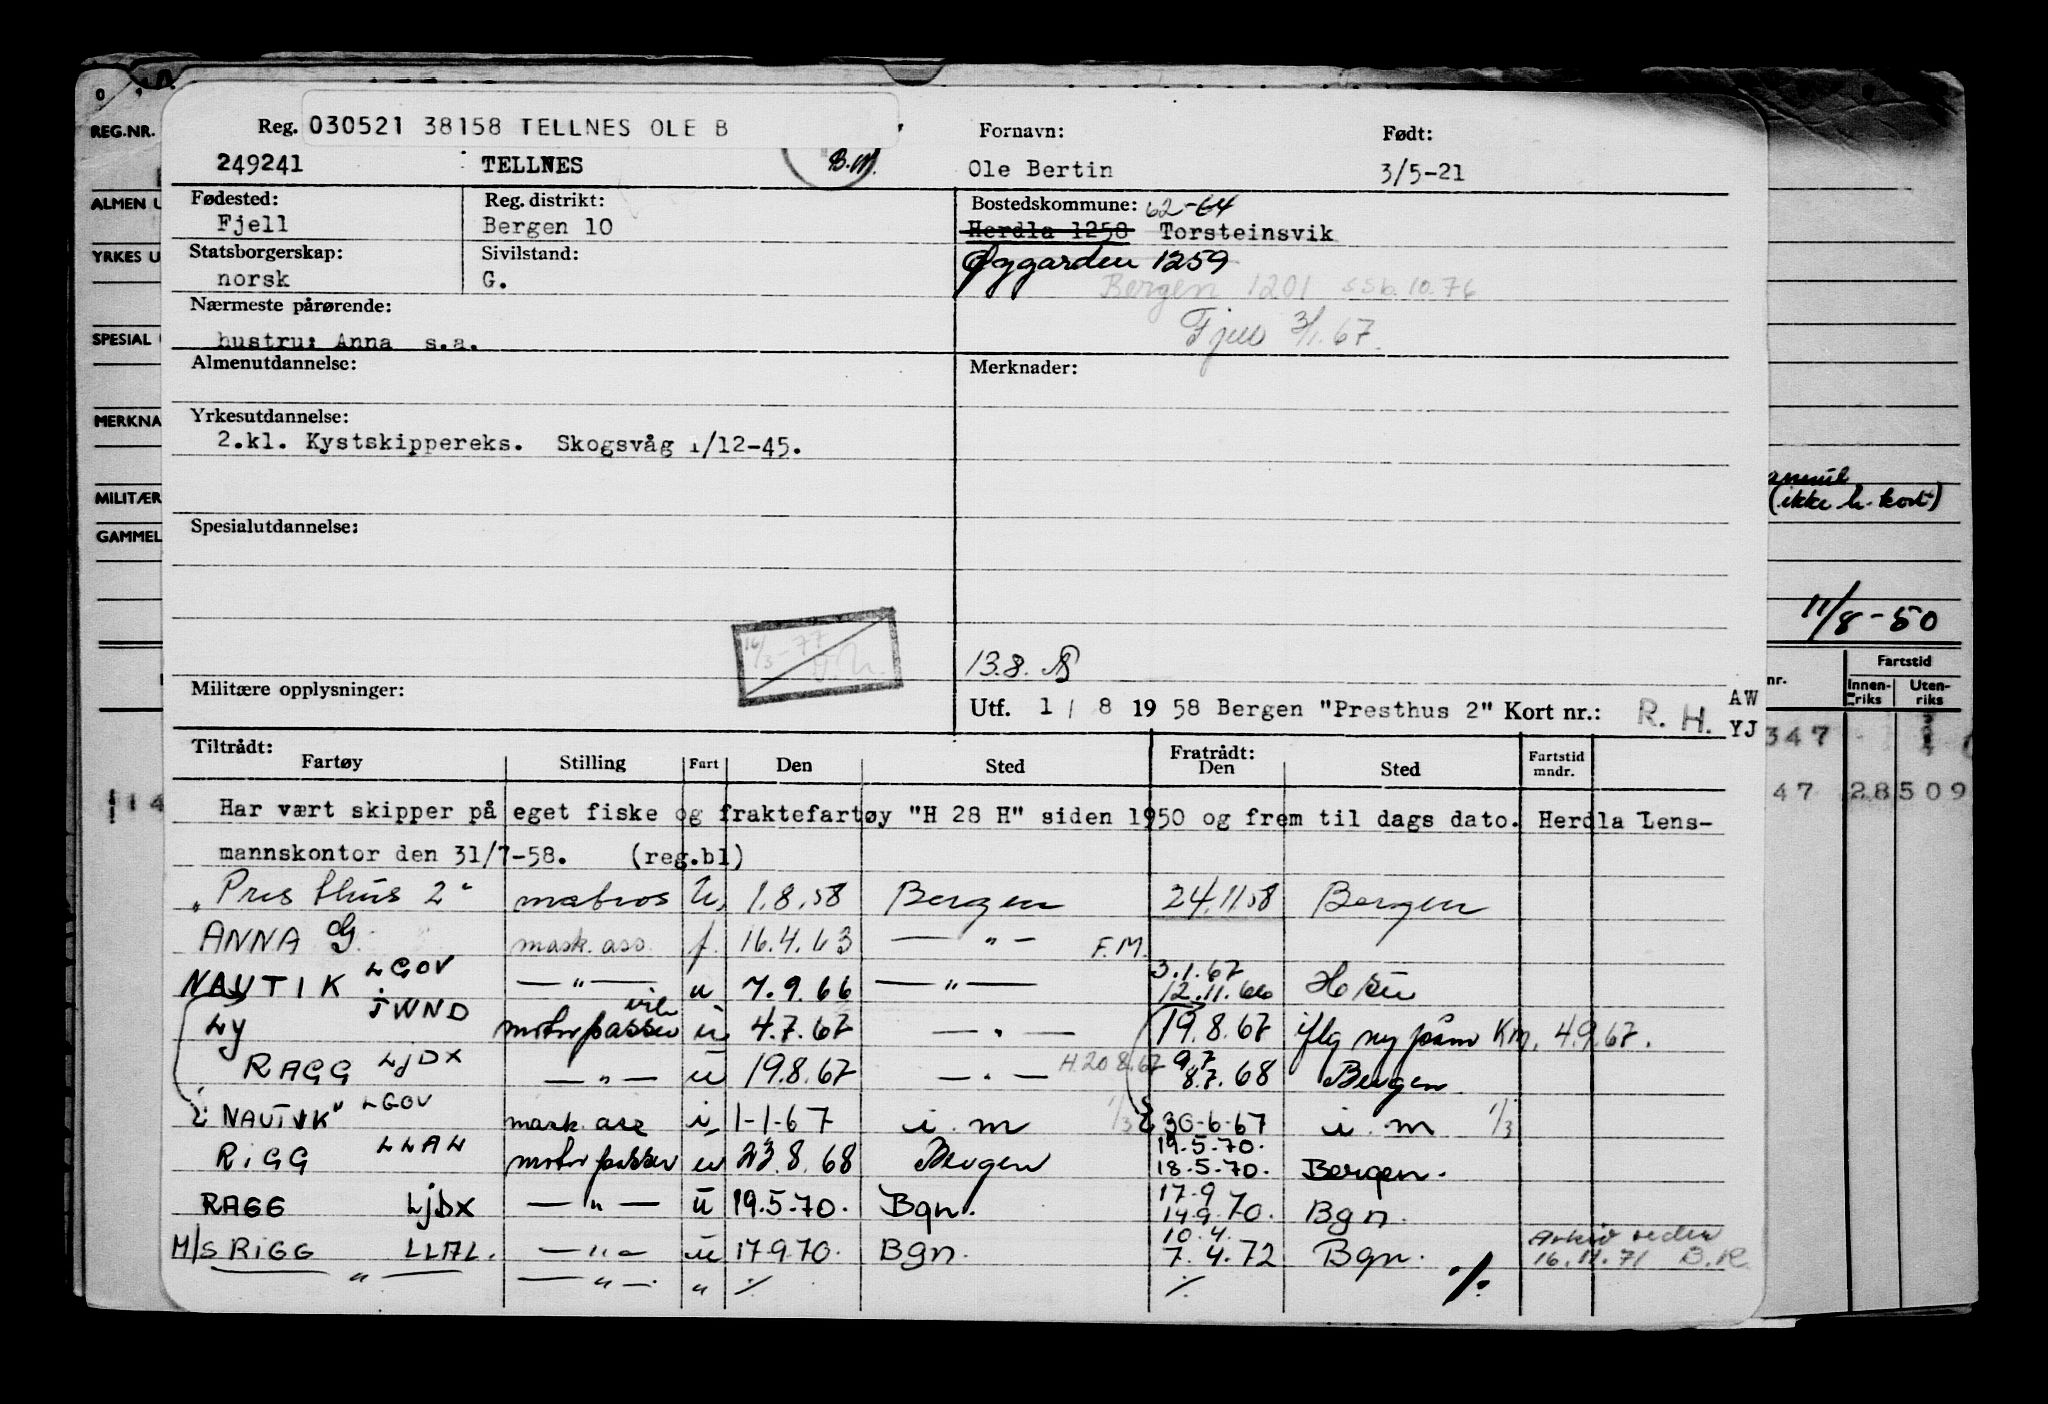 REG.NR.
ALMEN U
YRKES U
SPESIAL
MERKNA
MILITÆR
GAMMEL
Reg. 030521 38158 TELLNES OLE B
Fornavn: Født:
249241 TELLNES B.M. Ole Bertin 3/5-21
Fødested: Reg. distrikt: Bostedskommune: 62-64
Fjell Bergen 10 Herdla 1258 Torsteinsvik
Statsborgerskap: Sivilstand: Øygarden 1259
norsk G. Bergen 1201 SSb. 10.76
Nærmeste pårørende: Fjell 3/1.67.
hustru: Anna s.a.
Almenutdannelse: Merknader:
Yrkesutdannelse:
2.kl. Kystskippereks. Skogsvåg 1/12-45.
(ikke h. kort)
Spesialutdannelse:
11/8-50
16/3-77
13.8.
Militære opplysninger:
Utf. 1 / 8 19 58 Bergen "Presthus 2" Kort nr.: R. H. AW
YJ
nr. Fartstid
Innenriks Utenriks
347
47 28 509
14
Tiltrådt: Fratrådt:
Fartøy Stilling Fart Den Sted Den Sted Fartstid mndr.
Har vært skipper på eget fiske og fraktefartøy "H 28 H" siden 1950 og frem til dags dato. Herdla Lens-
mannskontor den 31/7-58. (reg.bl)
"Presthus 2" matros U, 1.8.58 Bergen 24.11.58 Bergen
ANNA G. mask. ass. f. 16.4.63 — " — F.M.
NAUTIK LGOV — " — u 7.9.66 — " — 3.1.67 12.11.66
LY JWND motorpasser vik u 4.7.67 — " — 19.8.67 iflg ny påm Km. 4.9.67.
RAGG LJDX — " — u 19.8.67 — " — H.20 8.67 9.7 8.7.68 Bergen
"NAUTIK" LGOV mask. ass i, 1-1-67 i . m 1/3 30-6-67 i . m 1/3
RIGG LLAL motorpasser u 23.8.68 Bergen 19.5.70. 18.5.70. Bergen.
RAGG LJDX — " — u 19.5.70. Bgn. 17.9 14.9.70. Bgn.
M/S RIGG LLAL. — " — u 17.9.70. Bgn. 10.4. 7.4.72 Bgn. Arkiv 16.11.71 B.R.
— " — — " — . " ./. ./. ./.